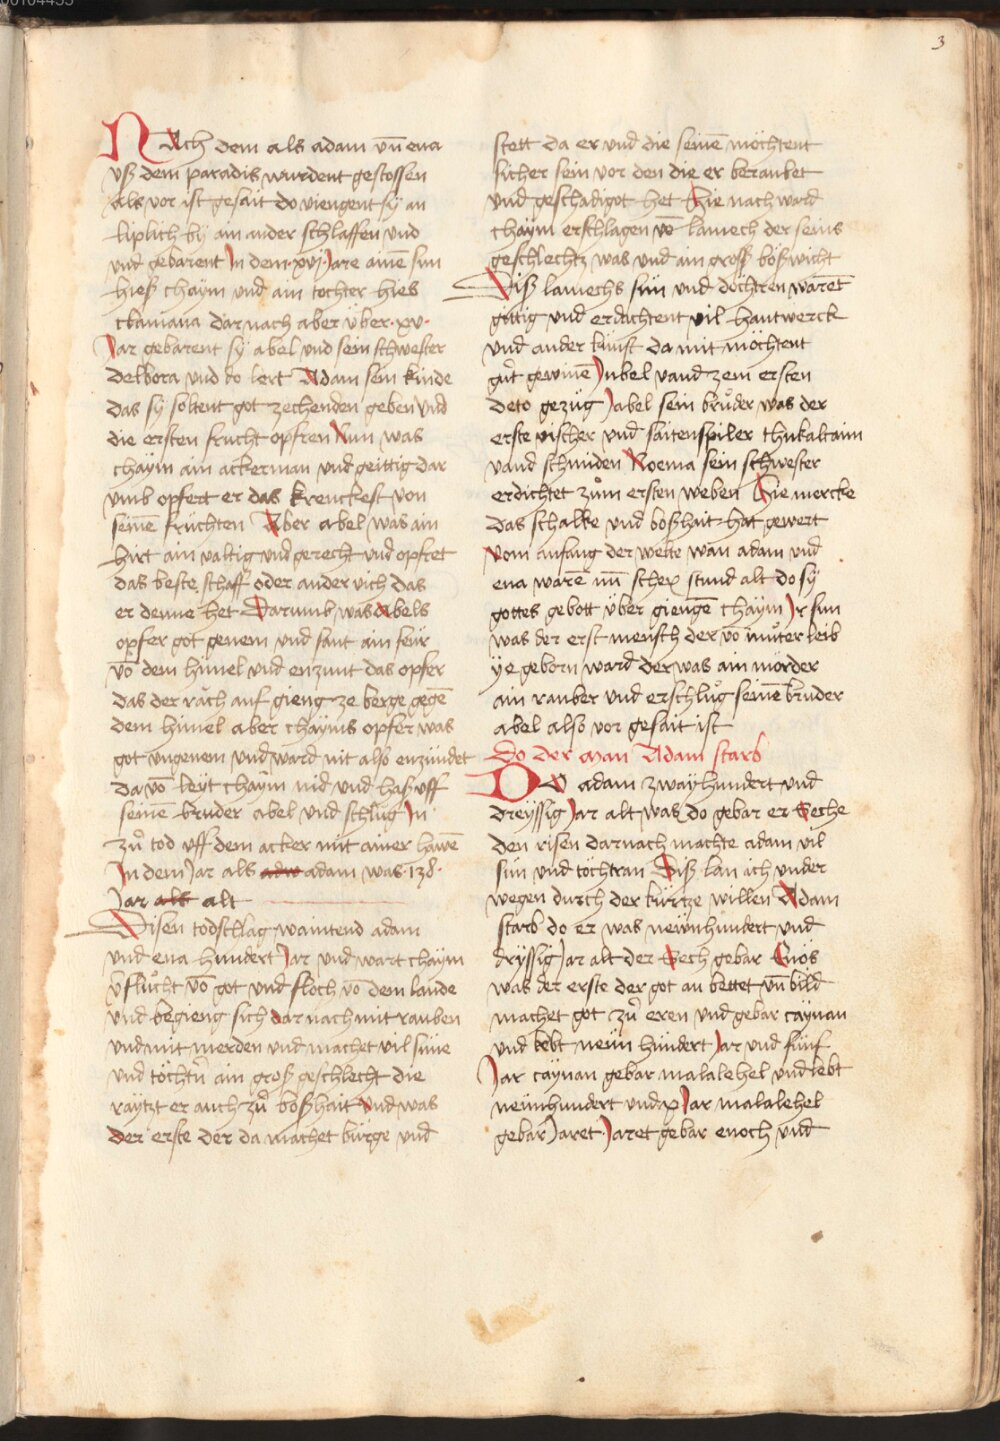 3
Nach dem als adam vn̄ eua
vß dem paradis wurdent gestossen
Als vor ist gesait do viengent sy an
liplich by ain ander schlaffen vnd
vnd gebarent In dem ·xvj· Jare ainē sun
hieß chaym vnd ain tochter hies
calmana dar nach aber über ·xv·
Jar gebarent sy abel vnd sein schwester
delbora vnd do lert Adam sein kinde
das sy soltent got zechenden geben vnd
die ersten frucht opfren Nun was
chaym ain ackerman vnd geittig dar
vmb opfert er das krenckest von
seinē früchten Aber abel was ain
hirt ain valtig vnd gerecht vnd opfret
das beste schaff oder ander vich das
er denne het Darumb was Abels
opfer got genem vnd sant ain feür
vō dem himel vnd enzunt das opfer
das der rach auf gieng ze berge gegē
dem himel aber chayms opfer was
got vngenem vnd ward nit also enzündet
Da vō leyt chaym nid vnd haß vff
seinē bruder abel vnd schlug In
zů tod vff dem acker mit ainer hawē
In dem Jar als adw adam was 138·
Jar als alt
Disen todschlag waintend adam
vnd eua hundert Jar vnd wart chaym
v̄flůcht vō got vnd floch vō dem lande
vnd begieng sich dar nach mit rauben
vnd mit merden vnd machet vil süne
vnd töchtn̄ ain groß geschlecht die
raytzt er auch zů boßhait vnd was
der erste der da machet bürge vnd
stett da er vnd die seinē möchtent
sicher sein vor den die er beraubet
vnd geschadigot het Hie nach ward
chaym erschlagen vō lamech der seins
geschlechtz was vnd ain groß bößwicht
Diß lamechs sün vnd döchtren warēt
gittig vnd erdachtent vil hantwerck
vnd ander kunst da mit möchtent
gůt gewinē Jubel vand zem ersten
deto gezüg Jabel sein brůder was der
erste vischer vnd saitenspiler thukaltaim
vand schmiden Noema sein schwester
erdichtet zům ersten weben Hie mercke
das schalke vnd boßhait hat gewert
vom anfang der welte wan adam vnd
eua warē nū schex stund alt do sy
gottes gebott über giengē chaym Ir sun
was der erst mensch der vō můter leib
ye geborn ward der was ain mörder
ain rauber vnd erschlůg seinē bruder
abel also vor gesait ist
Do der man Adam starb
Do adam zway hundert vnd
dreyssig Jar alt was do gebar er Seche
den risen dar nach machte adam vil
sün vnd töchtran Diß lan ich vnder
wegen durch der kürtze willen Adam
starb do er was neẅnhundert vnd
dryssig Jar alt der Sech gebar Enos
was der erste der got an bettet vn̄ bild
machet got zů eren vnd gebar caynan
vnd lebt neün hundert Jar vnd fünf
Jar caynan gebar malalehel vnd lebt
neünhundert vnd x Jar malalehel
gebar Jaret Jaret gebar enoch vnd